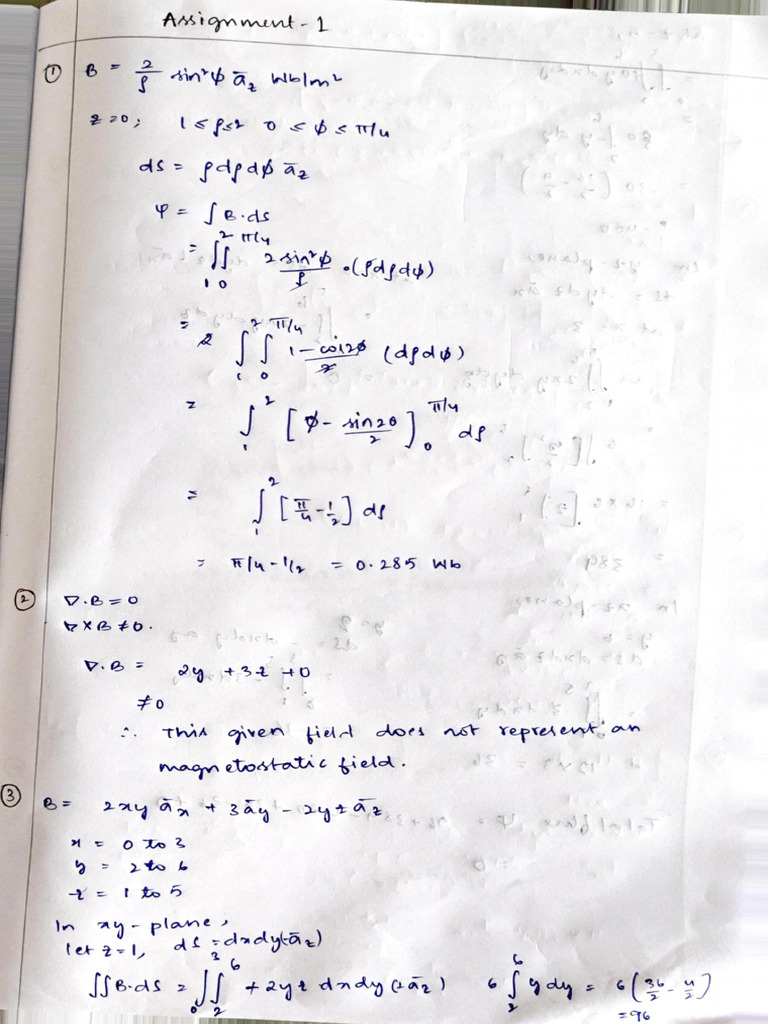 Assignment-1
① B = 2/ρ sin²φ āz Wb/m²
z=0; 1≤ρ≤2 0≤φ≤π/4
ds = ρdρdφ āz
ψ = ∫B.ds
= ∫₁²∫₀^π/4 2sin²φ/ρ .(ρdρdφ)
= 2 ∫₁²∫₀^π/4 1-cos2φ/2 (dρdφ)
= ∫₁² [φ - sin2θ/2]₀^π/4 dρ
= ∫₁² [π/4 - 1/2] dρ
= π/4 - 1/2 = 0.285 Wb
② ∇.B = 0
∇×B ≠ 0.
∇.B = 2y + 3z + 0
≠ 0
∴ This given field does not represent an
magnetostatic field.
③ B = 2xy āx + 3āy - 2yz āz
x = 0 to 3
y = 2 to 6
z = 1 to 5
In xy-plane,
let z=1, ds = dxdy(-āz)
∫∫B.ds = ∫₀³∫₂⁶ +2yz dxdy (+āz) 6 ∫₂⁶ y dy = 6(36/2 - 4/2)
=96